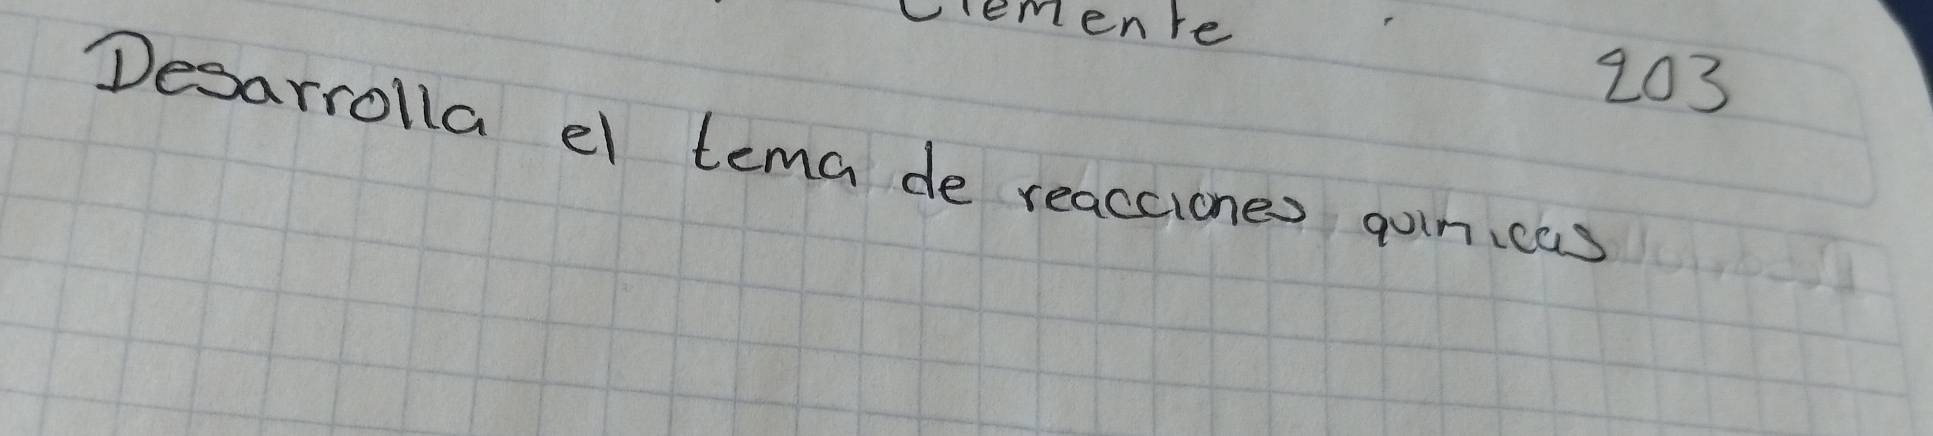 Clemente
203
Desarrolla el tema de reacciones quimicas